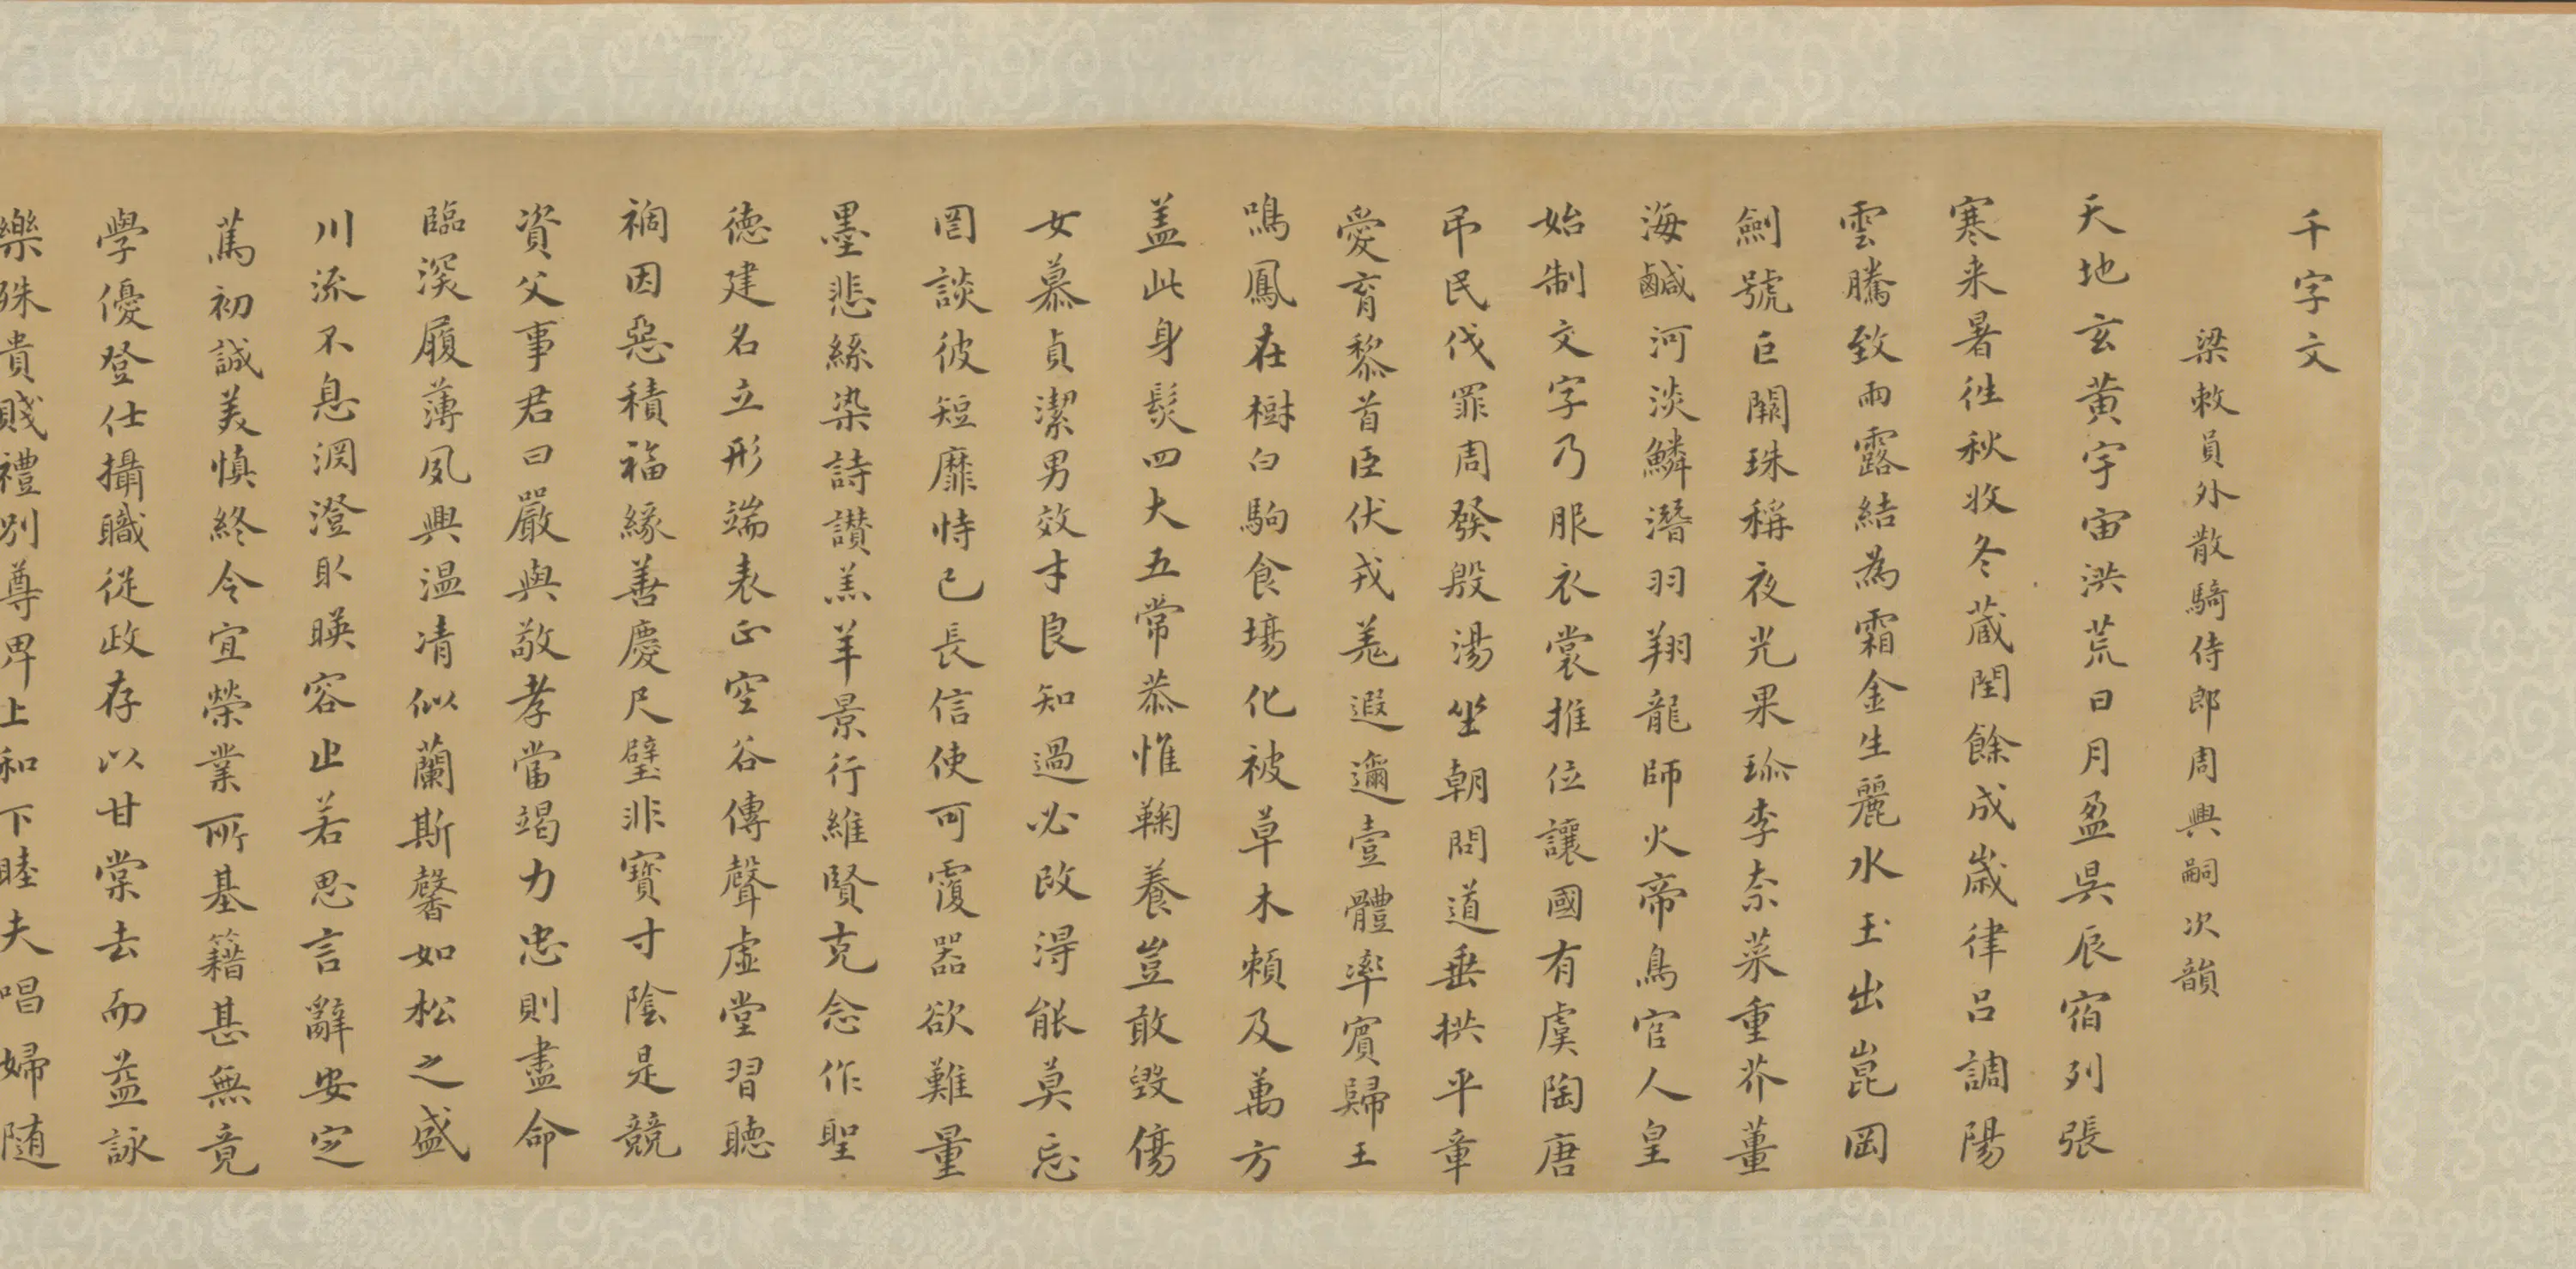 千字文
梁敕員外散騎侍郎周興嗣次韻
天地玄黄宇宙洪荒日月盈昃辰宿列張
寒来暑徃秋收冬蔵閏餘成歲律吕調陽
雲騰致雨露結為霜金生麗水玉出崑岡
劍號巨闕珠稱夜光果珎李柰菜重芥薑
海鹹河淡鱗潛羽翔龍師火帝鳥官人皇
始制文字乃服衣裳推位讓國有虞陶唐
弔民伐罪周發殷湯坐朝問道垂拱平章
愛育黎首臣伏戎羌遐邇壹體率賓歸王
鳴鳳在樹白駒食場化被草木頼及萬方
盖此身髮四大五常恭惟鞠養豈敢毀傷
女慕貞潔男效才良知過必改得能莫忘
罔談彼短靡恃己長信使可覆器欲難量
墨悲絲染詩讃羔羊景行維賢克念作聖
徳建名立形端表正空谷傳聲虛堂習聽
禍因惡積福緣善慶尺璧非寶寸陰是競
資父事君曰嚴與敬孝當竭力忠則盡命
臨深履薄夙興温凊似蘭斯馨如松之盛
川流不息淵澄取暎容止若思言辭安定
篤初誠美慎終令宜榮業所基籍甚無竟
學優登仕攝職從政存以甘棠去而益詠
樂殊貴賤禮别尊卑上和下睦夫唱婦随